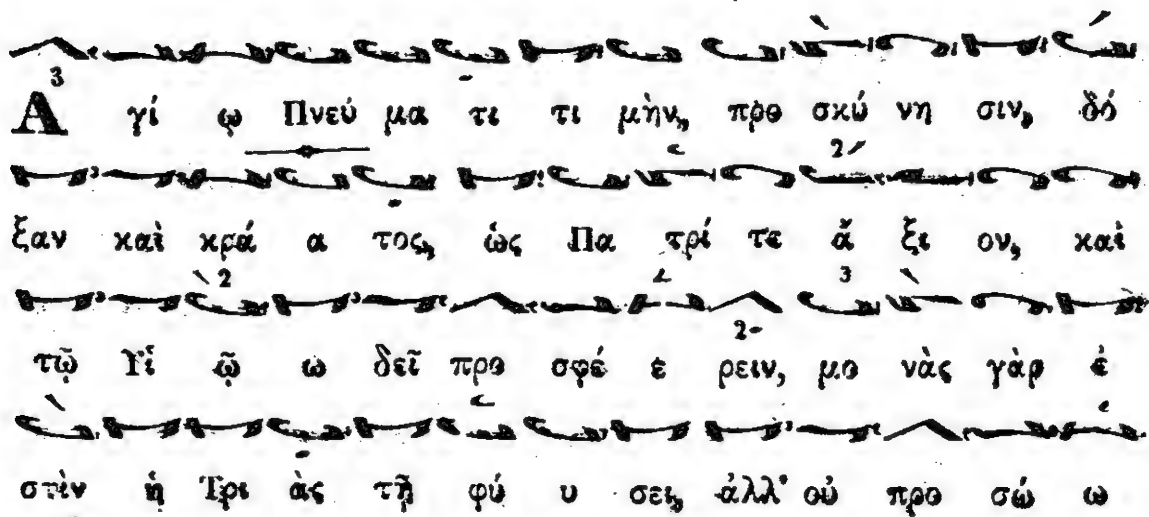 Α γί ῳ Πνεύ μα τι τι μὴν, προ σκύ νη σιν, δό
ξαν καὶ κρά α τος, ὡς Πα τρί τε ἄ ξι ον, καὶ
τῷ Υἱ ῷ ω δεῖ προ σφέ ε ρειν, μο νὰς γὰρ ἐ
στὶν ἡ Τρι ὰς τῇ φύ υ σει, ἀλλ' οὐ προ σώ ω